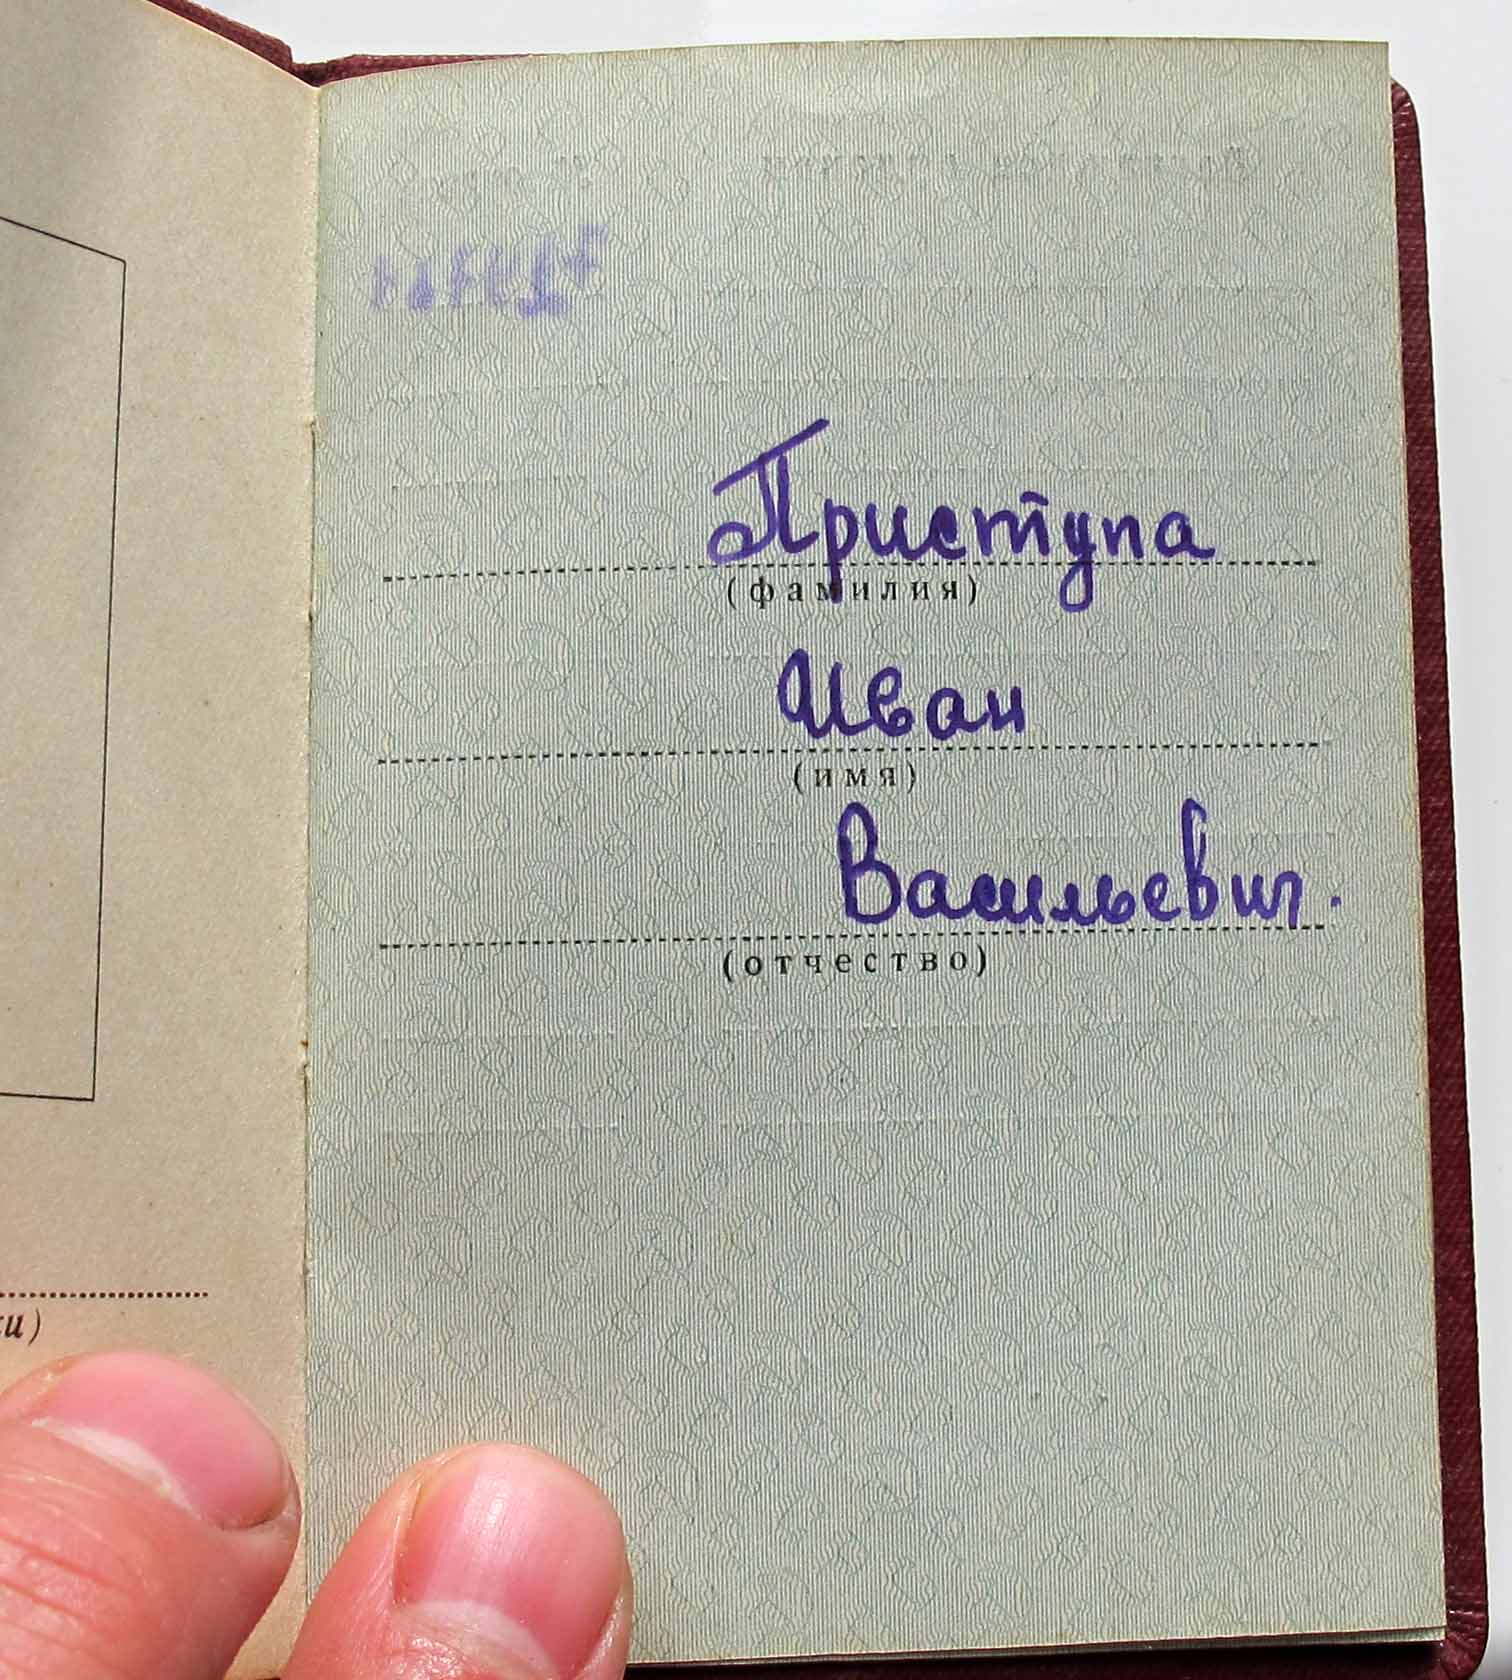 Приступа
(фамилия)
Иван
(имя)
Васильевич.
(отчество)
ки)